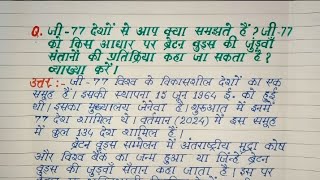 Q. जी-77 देशों से आप क्या समझते हैं? जी-77
को किस आधार पर ब्रेटन वुड्स की जुड़वाँ
संतानों की प्रतिक्रिया कहा जा सकता है?
व्याख्या करें।
उत्तर:- जी-77 विश्व के विकासशील देशों का एक
समूह है। इसकी स्थापना 15 जून 1964 ई. को हुई
थी। इसका मुख्यालय जेनेवा है। शुरुआत में इसमें
77 देश शामिल थे। वर्तमान (2024) में इस समूह
में कुल 134 देश शामिल हैं।
ब्रेटन वुड्स सम्मेलन में अंतराष्ट्रीय मुद्रा कोष
और विश्व बैंक का जन्म हुआ था जिन्हें ब्रेटन
वुड्स की जुड़वाँ संतान कहा जाता है। इस पर